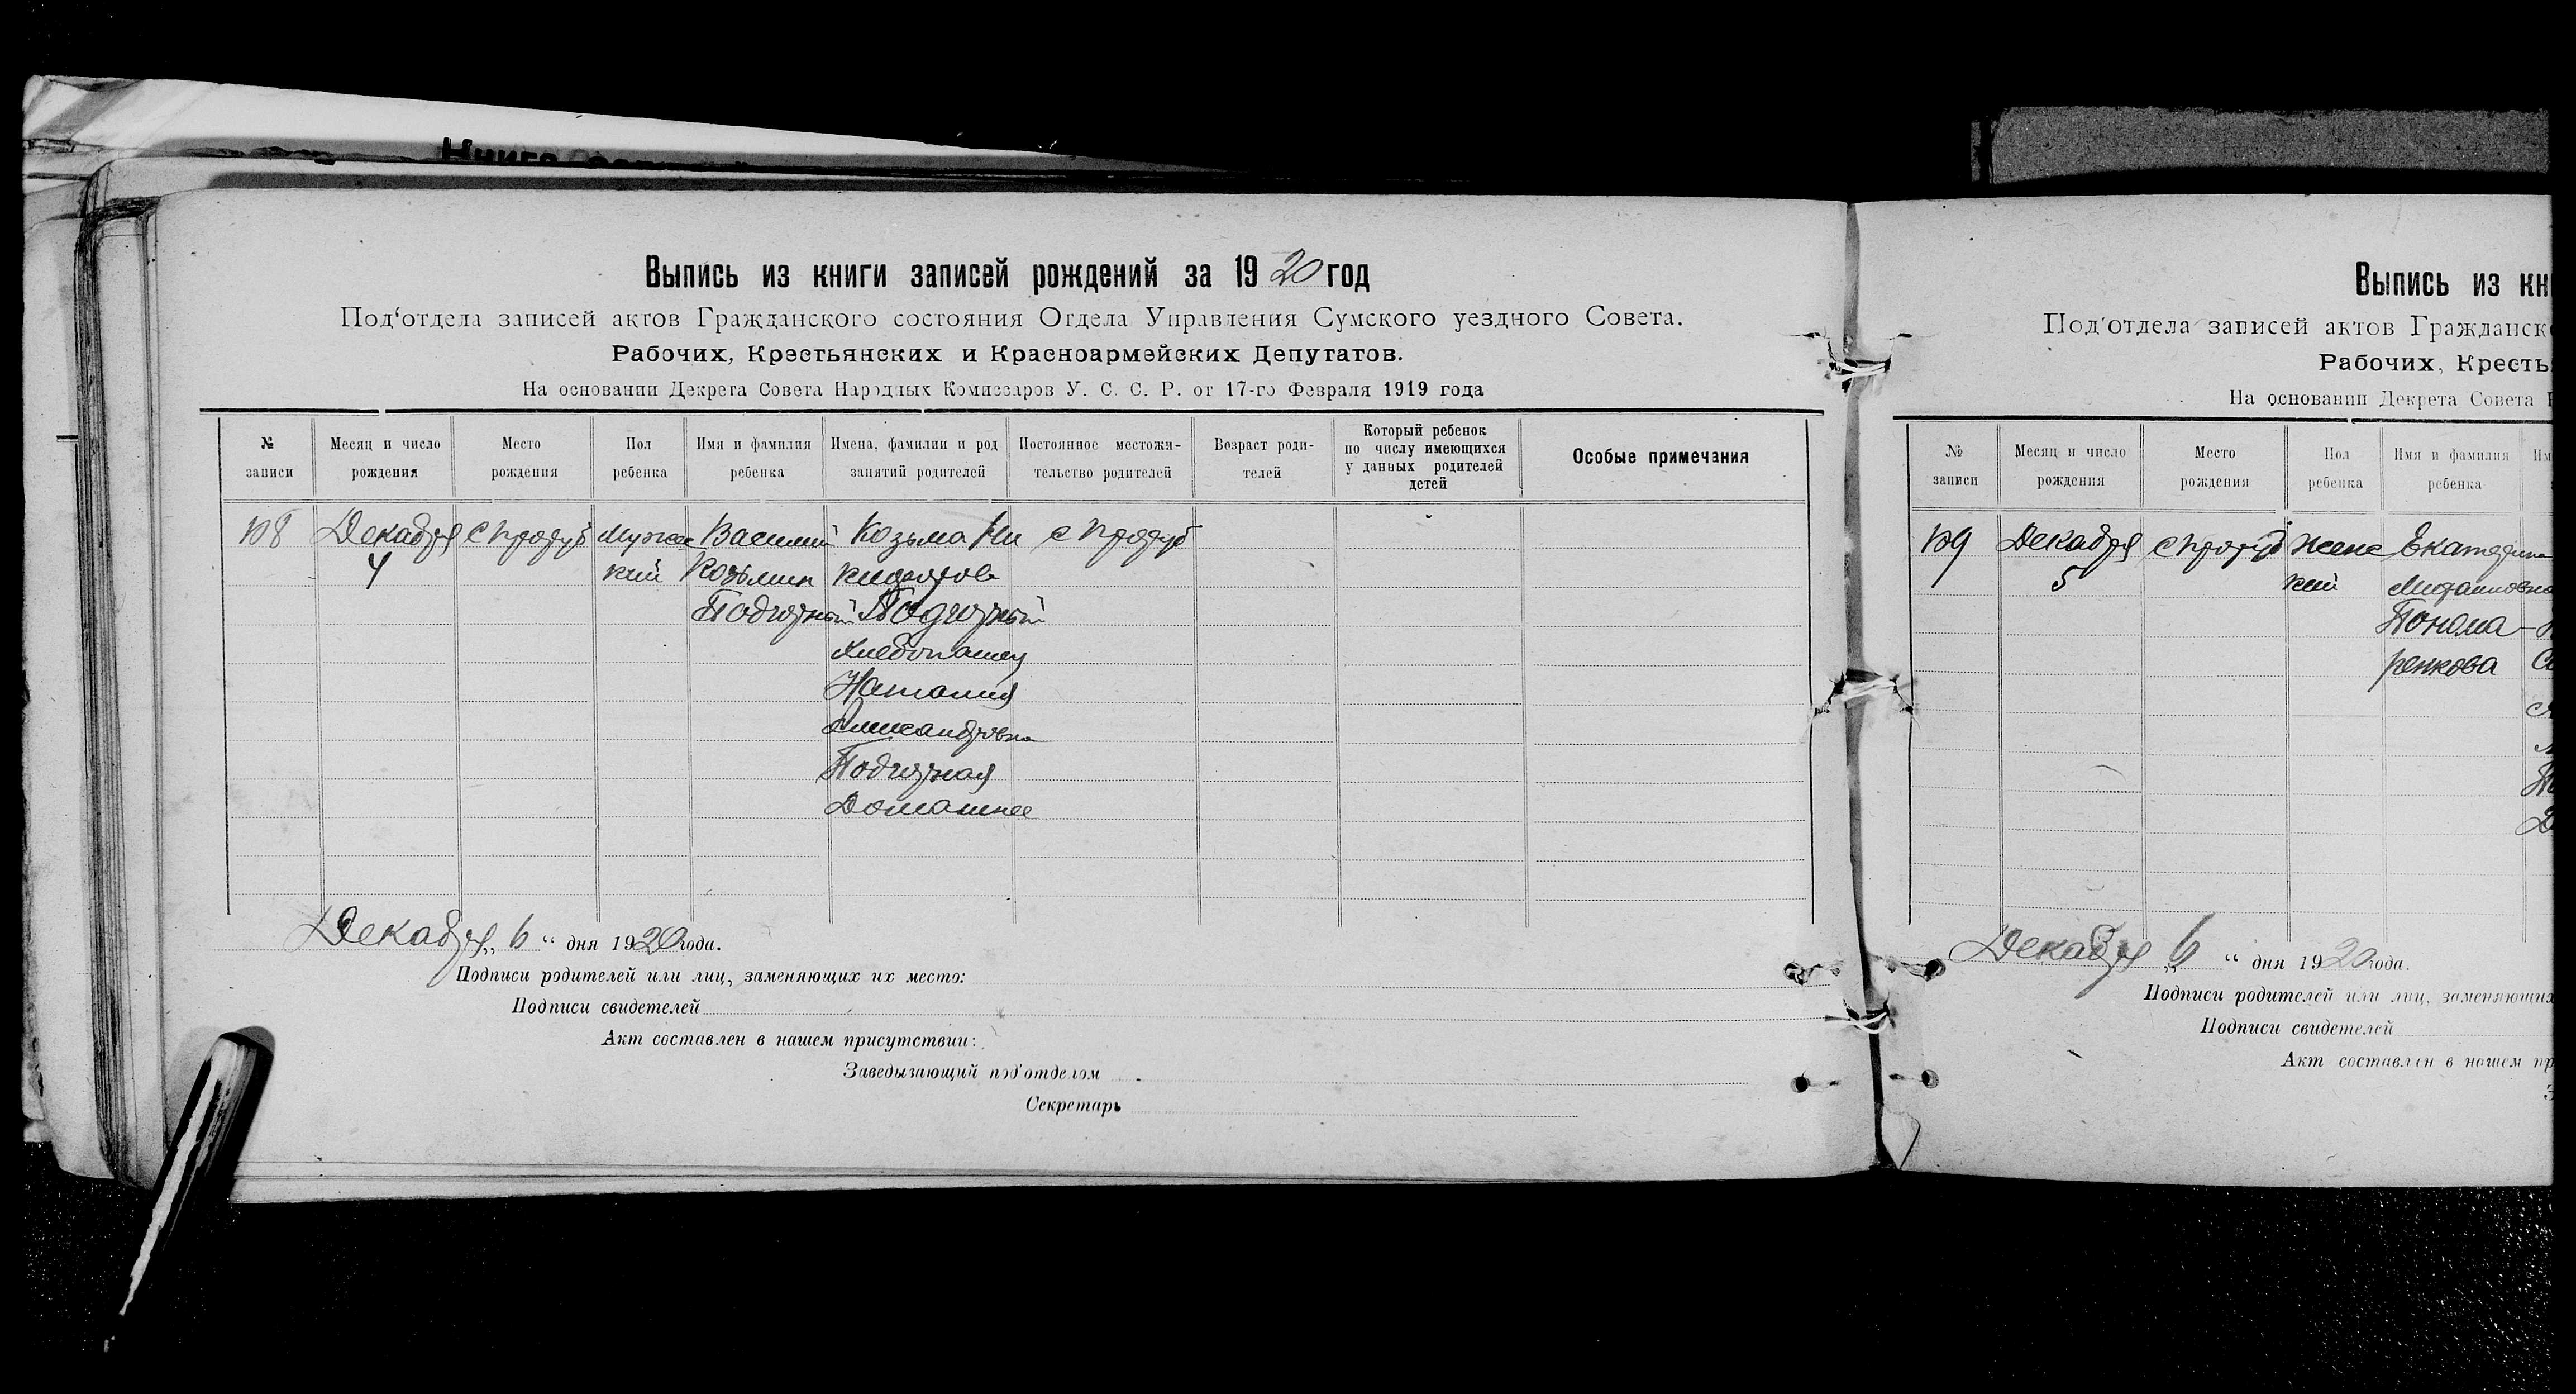 Книга
Выпись из книги записей рождений за 1920 год
Под‘отдела записей актов Гражданского состояния Отдела Управления Сумского уездного Совета.
Рабочих, Крестьянских и Красноармейских Депутатов.
На основании Декрета Совета Народных Комиссаров У. С. С. Р. от 17-го Февраля 1919 года
№ записи
Месяц и число рождения
Место рождения
Пол ребенка
Имя и фамилия ребенка
Имена, фамилии и род занятий родителей
Постоянное местожительство родителей
Возраст родителей
Который ребенок по числу имеющихся у данных родителей детей
Особые примечания
108
Декабря
4
с
Мужс
кий
Василий
Козьмин
Козьма Ни
с
Хлебопашец
Наталия
Александровна
Домашнее
Декабря „ 6 “ дня 1920 года.
Подписи родителей или лиц, заменяющих их место:
Подписи свидетелей
Акт составлен в нашем присутствии:
Заведывающий под'отделом
Секретарь
Выпись из кн
Под'отдела записей актов Гражданск
Рабочих, Кресть
На основании Декрета Совета
№ записи
Месяц и число рождения
Место рождения
Пол ребенка
Имя и фамилия ребенка
109
Декабря
5
с
Женс
кий
Екатерина
Понома-
ренкова
Декабря „ 6 “ дня 1920 года.
Подписи родителей или лиц, заменяющих
Подписи свидетелей
Акт составлен в нашем пр